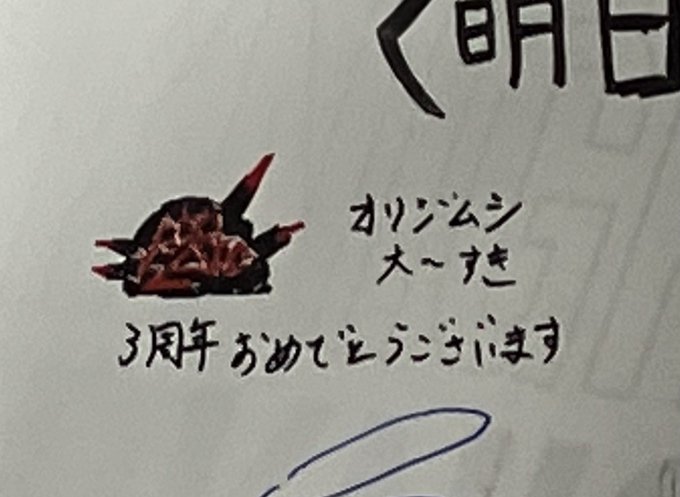 〈明日
オリジムシ
大〜すき
3周年おめでとうございます